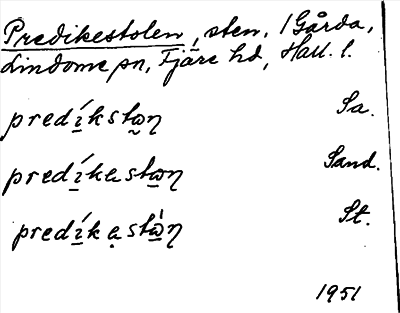 Predikestolen, sten, i Gårda,
Lindome sn, Fjäre hd, Hall. l.
predíkstɷn Sa.
predíkestɷn Sand.
predíkestɷ̀n St.
1951